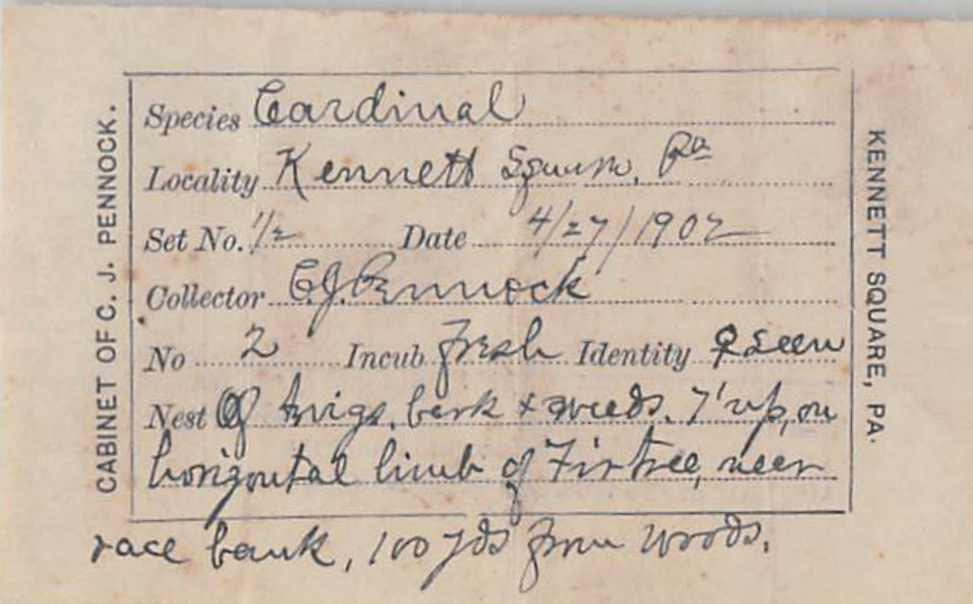 CABINET OF C. J. PENNOCK.
Species Cardinal
Locality Kennett Square, Pa
Set No. 1/2 Date 4/27/1902
Collector C.J. Pennock
No 2 Incub Fresh Identity ♀ seen
Nest Of twigs, bark & weeds. 7' up, on
horizontal limb of Fir tree, near
race bank, 100 yds from woods.
KENNETT SQUARE, PA.